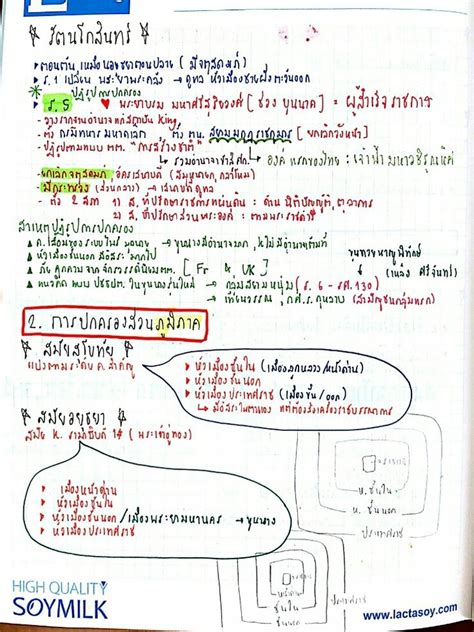 รัตนโกสินทร์
ตอนต้น เหมือนอยุธยาตอนปลาย (มีจตุสดมภ์)
ร.1 เปลี่ยน พระยาพระคลัง → ดูแล หัวเมืองชายฝั่งตะวันออก
ปฏิรูปการปกครอง
ร.5 พระยาบรม มหาศรีสุริยวงศ์ [ช่วง บุนนาค] = ผู้สำเร็จราชการ
King
ตั้ง ตน. สยามมกุฎราชกุมาร [ยกเลิกวังหน้า]
ปฏิรูปตามแบบ ตต. "การสร้างชาติ"
รวมอำนาจ องค์แรกของไทย : เจ้าฟ้ามหาวชิรุณหิศ
ยกเลิกจตุสดมภ์, อัครเสนาบดี (สมุหนายก, กลาโหม)
มีกระทรวง (ส่วนกลาง) → เสนาบดีดูแล
ตั้ง 2 สภา 1) ส. ที่ปรึกษาราชการแผ่นดิน : ด้านนิติบัญญัติ, ตุลาการ
2) ส. ที่ปรึกษาส่วนพระองค์ : ตามพระราชดำริ
สาเหตุปฏิรูปการปกครอง
ค.เสื่อมของระบบไพร่ มูลนาย → ขุนนางมีอำนาจมาก, K ไม่มีอำนาจเต็มที่
หัวเมืองชั้นนอก มีอิสระมากไป
ภัยคุกคามจากจักรวรรดินิยม ตต. [Fr & UK]
กลุ่มสยามหนุ่ม (ร.6 - รศ.130)
เทียนวรรณ, ก.ศ.ร. กุหลาบ (สามัญชนกลุ่มแรก)
2. การปกครองส่วนภูมิภาค
สมัยสุโขทัย
แบ่งตามระดับ ค.สำคัญ
หัวเมืองชั้นใน (เมืองลูกหลวง/หน้าด่าน)
หัวเมืองชั้นนอก
หัวเมืองประเทศราช (เมืองขึ้น/ออก)
มีอิสระในตนเอง แต่ต้องส่งเครื่องราชบรรณาการ
สมัยอยุธยา
สมัย K. รามาธิบดีที่ 1 (พระเจ้าอู่ทอง)
เมืองหน้าด่าน
หัวเมืองชั้นใน
หัวเมืองชั้นนอก/เมืองพระยามหานคร → ขุนนาง
หัวเมืองประเทศราช
ห.ชั้นใน
ห.ชั้นนอก
ประเทศราช
หน้าด่าน
ชั้นใน
ชั้นนอก
ประเทศราช
HIGH QUALITY
SOYMILK
www.lactasoy.com